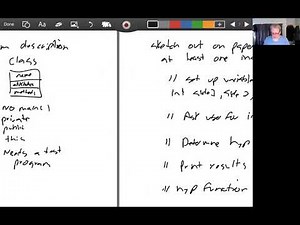 description
class
name
attributes
methods
No main!
private
public
this
Needs a test
program
sketch out on paper
at least one m
// set up variab
int side1, side2,
// Ask user for i
// Determine hyp
// Print results
// hyp function